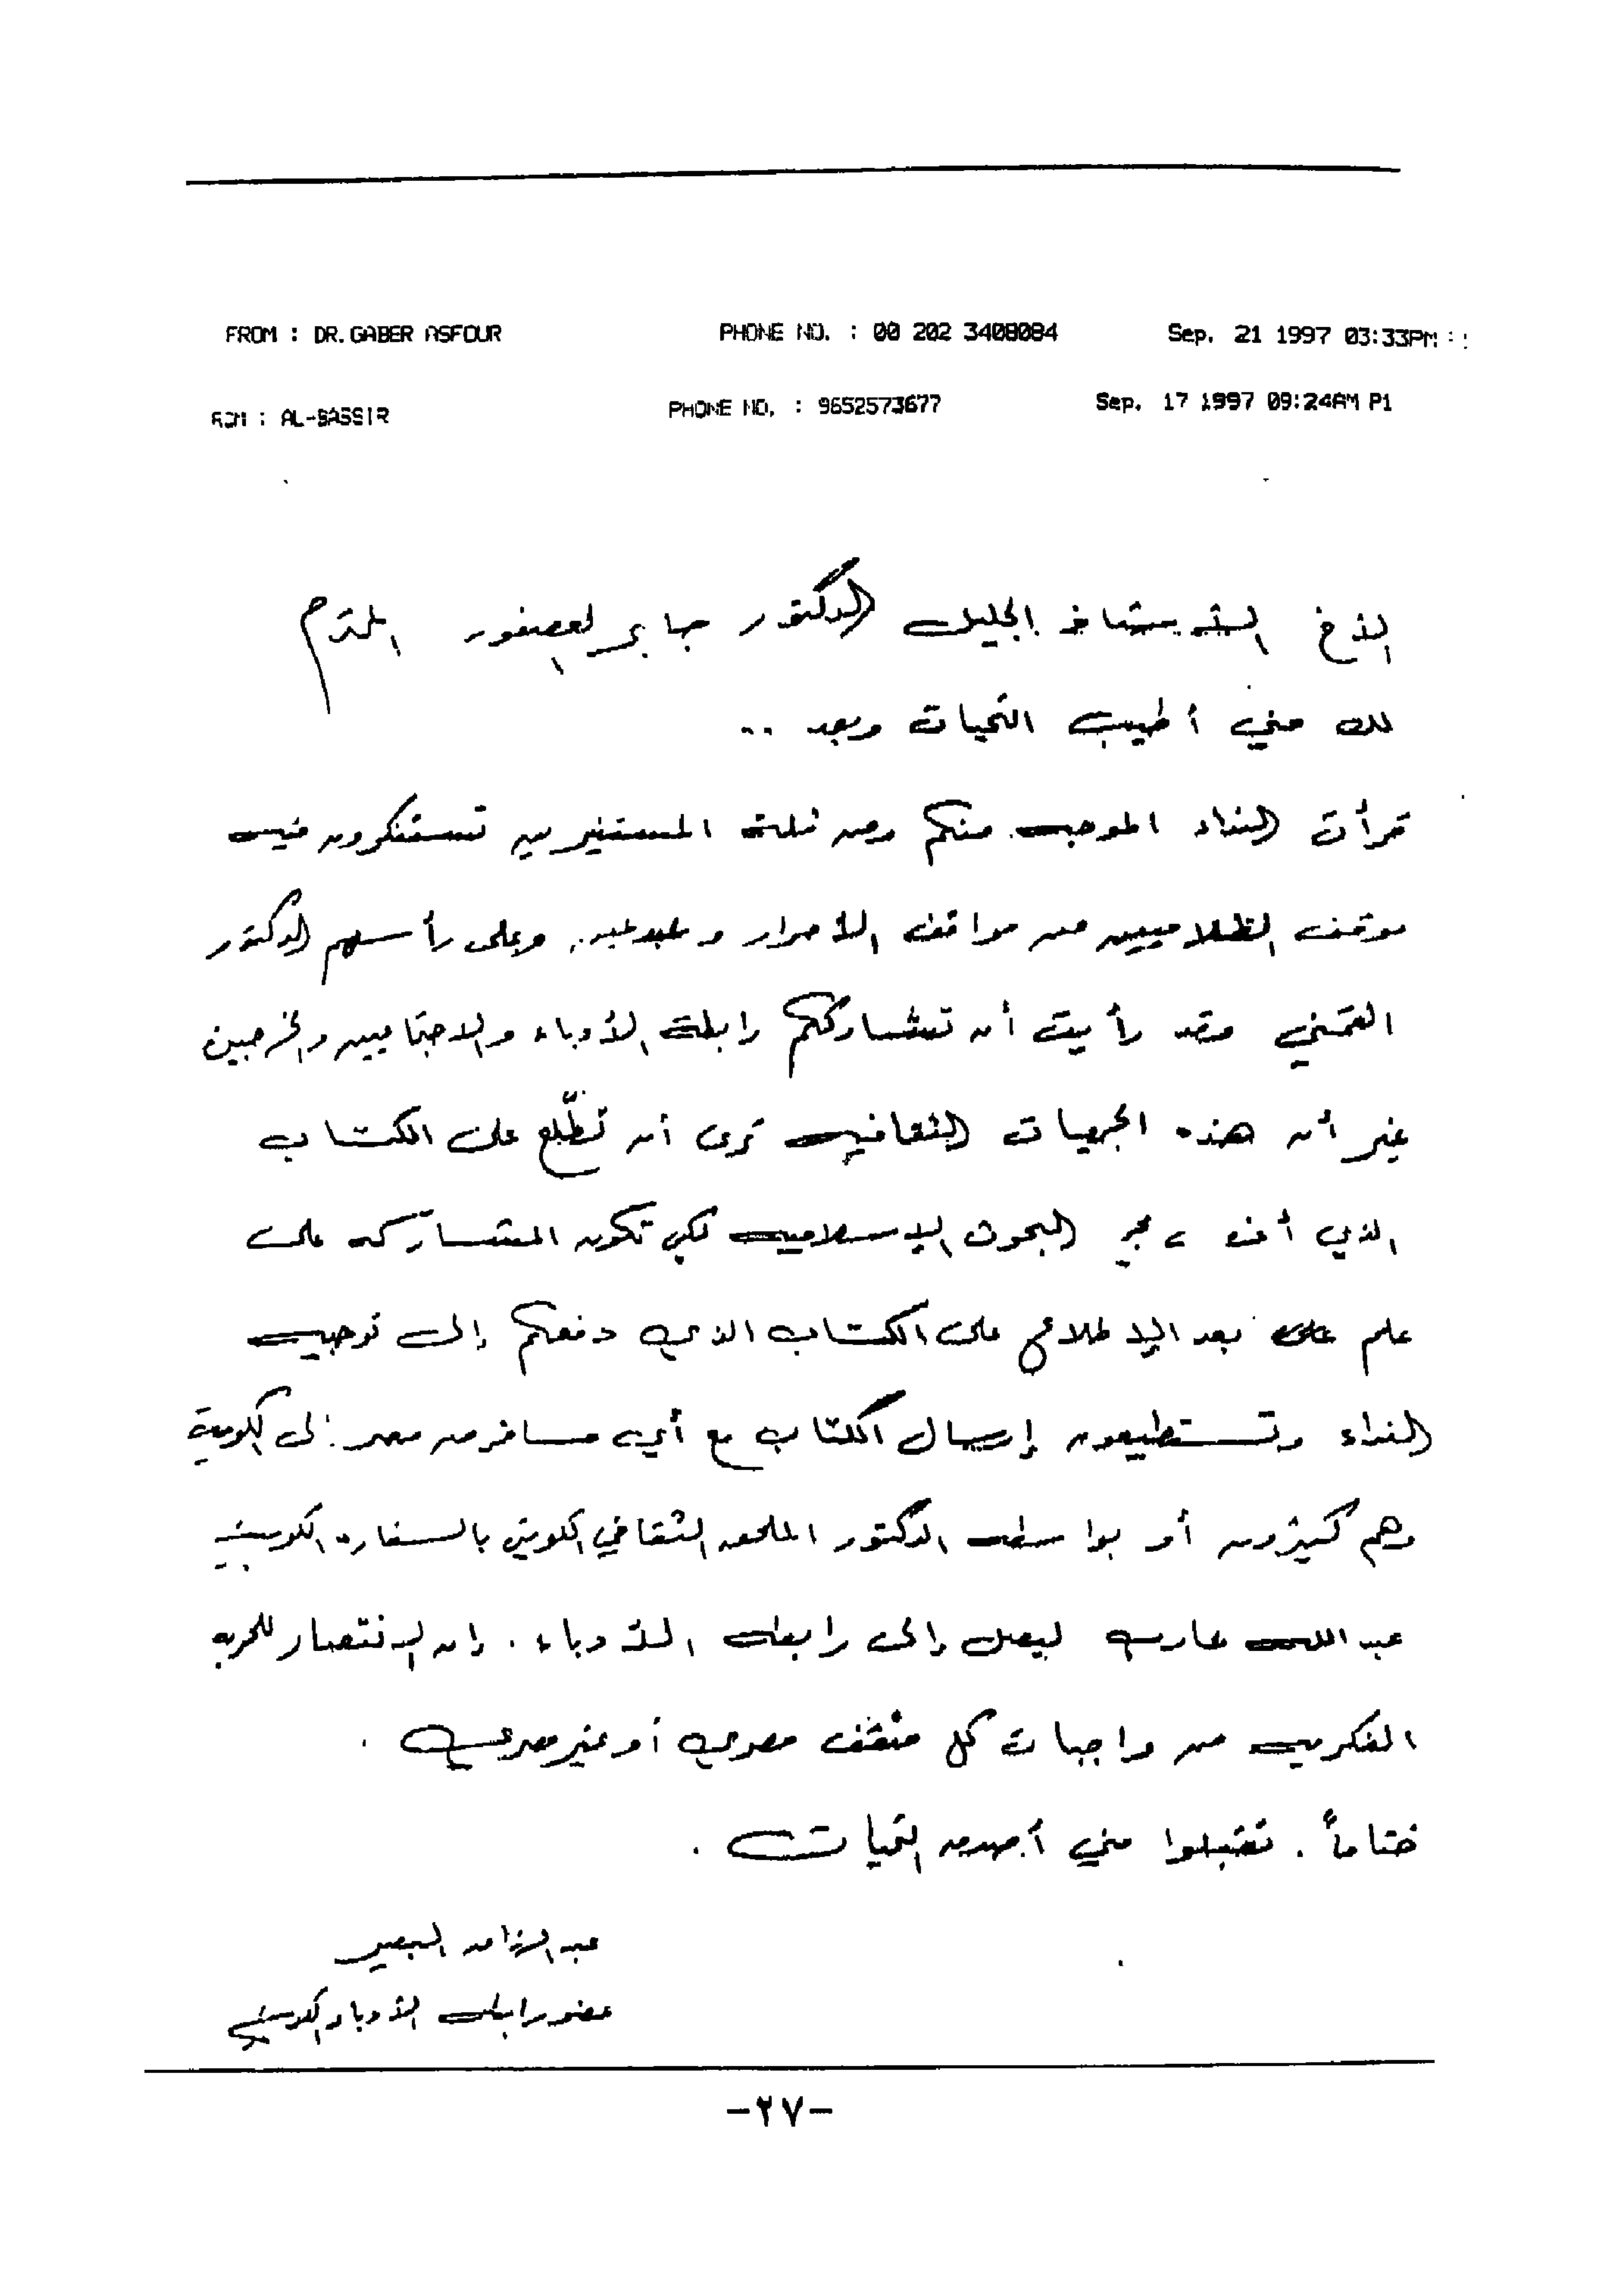 FROM : DR.GABER ASFOUR PHONE NO. : 00 202 3408084 Sep. 21 1997 03:33PM
ROM : AL-BASSIR PHONE NO. : 9652573677 Sep. 17 1997 09:24AM P1
الأخ الأستاذ الجليل الدكتور جابر العصفور المحترم
لك مني أطيب التحيات وبعد ..
قرأت النداء الموجه منكم ومن ثلة المستنيرين تستنكرون فيه
موقف الظلاميين من مواقف الأحرار وعلى رأسهم الدكتور
القمني وقد رأيت أن تشارككم رابطة الأدباء والاجتماعيين والخرجين
غير أن هذه الجمعيات الثقافية ترى أن تطّلع على الكتاب
الذي البحوث الإسلامية لكي تكون المشاركة على
علم بعد الإطلاع على الكتاب الذي دفعكم إلى توجيه
النداء وتستطيعون إرسال الكتاب مع أي مسافر من مصر إلى الكويت
وهم كثيرون أو بواسطة الدكتور الملحق الثقافي الكويتي بالسفارة الكويتية
عبدالله ليصل إلى رابطة الأدباء . إن الإنتصار للحرية
الفكرية من واجبات كل مثقف مصري أو غير مصري .
ختاماً . تقبلوا مني أصدق التحيات .
عبد الرزاق البصير
عضو رابطة الأدباء الكويتي
-٢٧-